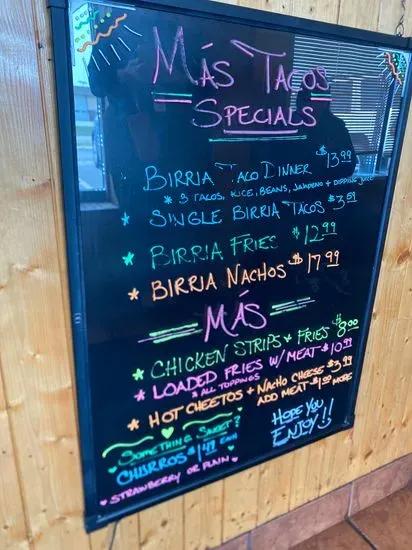 Más Tacos
Specials
Birria Taco Dinner $13.99
* 3 Tacos, Rice, Beans, Jalapeno + Dipping Juice
* Single Birria Tacos $3.59
* Birria Fries $12.99
* Birria Nachos $17.99
Más
* Chicken Strips + Fries $8.00
* Loaded Fries w/ Meat $10.99
& All Toppings
* Hot Cheetos + Nacho Cheese $3.99
Add Meat $1.00 More
Something Sweet?
Churros $1.49 Each
Strawberry or Plain
Hope You
Enjoy!!